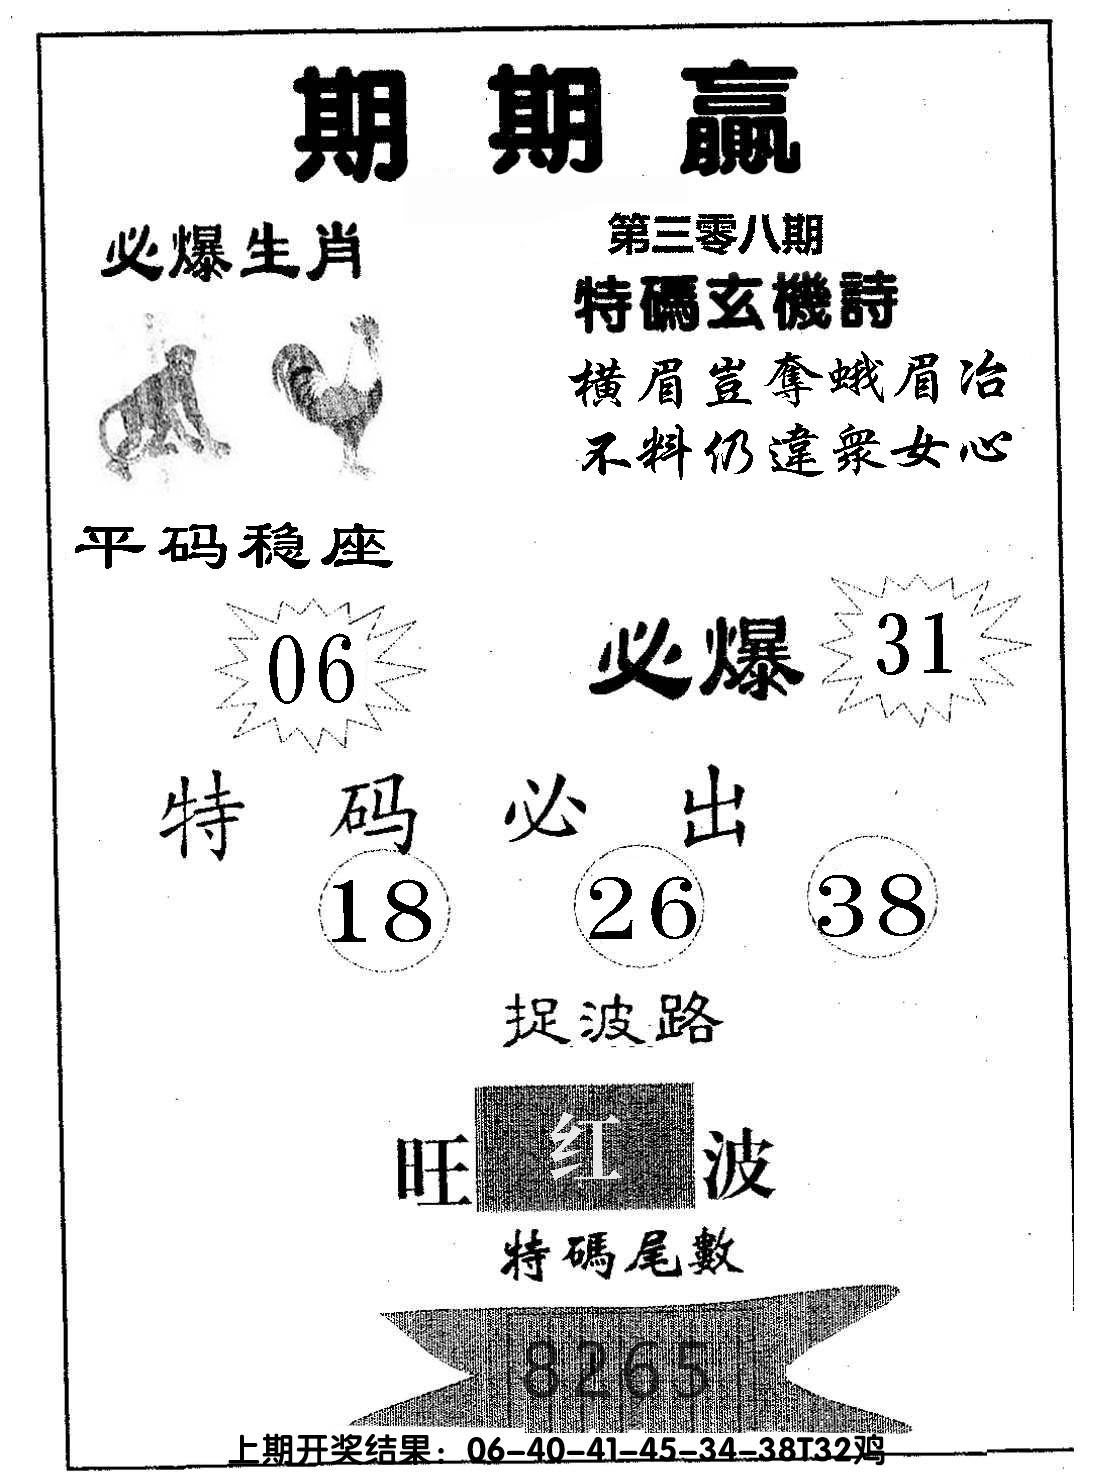 期期赢
必爆生肖
第三零八期
特碼玄機詩
横眉豈奪蛾眉冶
不料仍違衆女心
平码稳座
06
必爆
31
特码必出
18 26 38
捉波路
旺红波
特碼尾數
8265
上期开奖结果：06-40-41-45-34-38T32鸡